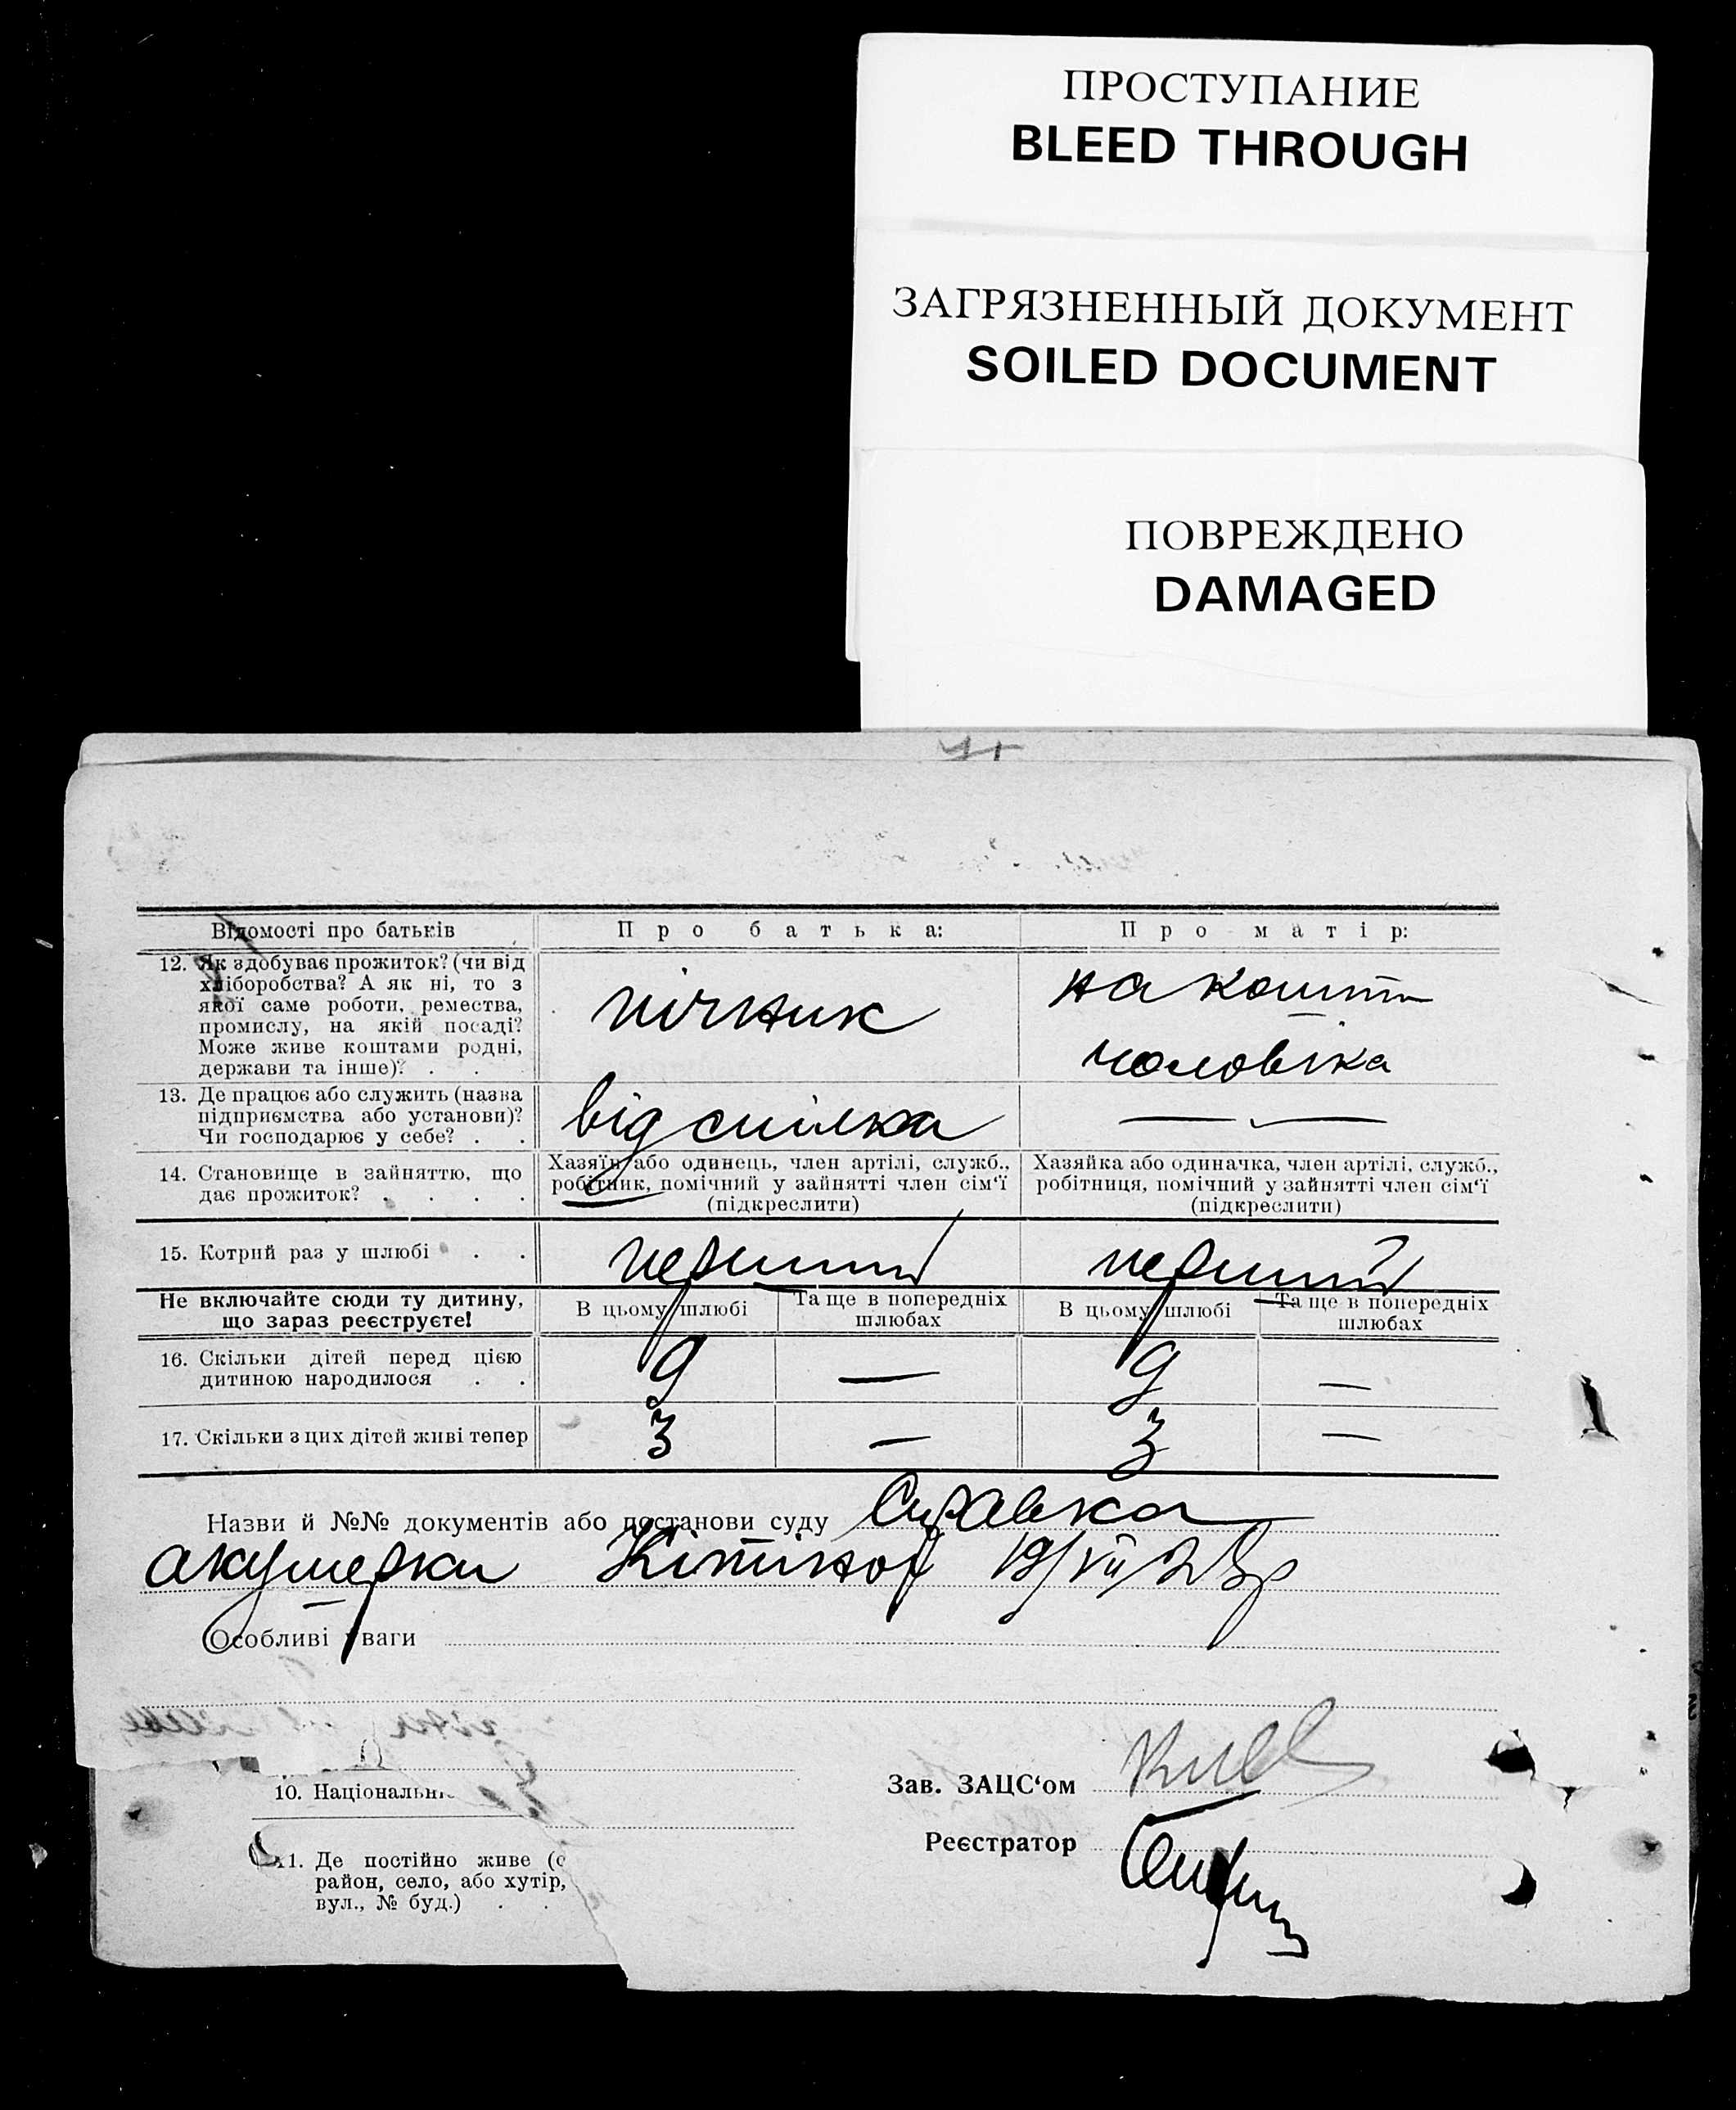 ПРОСТУПАНИЕ
BLEED THROUGH
ЗАГРЯЗНЕННЫЙ ДОКУМЕНТ
SOILED DOCUMENT
ПОВРЕЖДЕНО
DAMAGED
Відомості про батьків
Про батька:
Про матір:
12. Як здобуває прожиток? (чи від
хліборобства? А як ні, то з
якої саме роботи, ремества,
промислу, на якій посаді?
Може живе коштами родні,
держави та інше)? . .
пічник
на кошти
чоловіка
13. Де працює або служить (назва
підприємства або установи)?
Чи господарює у себе? . .
від спілка
— —
14. Становище в зайняттю, що
дає прожиток? . . . .
Хазяїн або одинець, член артілі, служб.,
робітник, помічний у зайнятті член сім'ї
(підкреслити)
Хазяйка або одиначка, член артілі, служб.,
робітниця, помічний у зайнятті член сім'ї
(підкреслити)
15. Котрий раз у шлюбі . .
перший
перший
Не включайте сюди ту дитину,
що зараз реєструєте!
В цьому шлюбі
Та ще в попередніх
шлюбах
В цьому шлюбі
Та ще в попередніх
шлюбах
16. Скільки дітей перед цією
дитиною народилося . .
9 — 9 —
17. Скільки з цих дітей живі тепер
3 — 3 —
Назви й №№ документів або постанови суду Справка
акушерки 19/VII 28р
Особливі уваги
10. Національн
11. Де постійно живе (с
район, село, або хутір,
вул., № буд.) . .
Зав. ЗАЦС'ом
Реєстратор